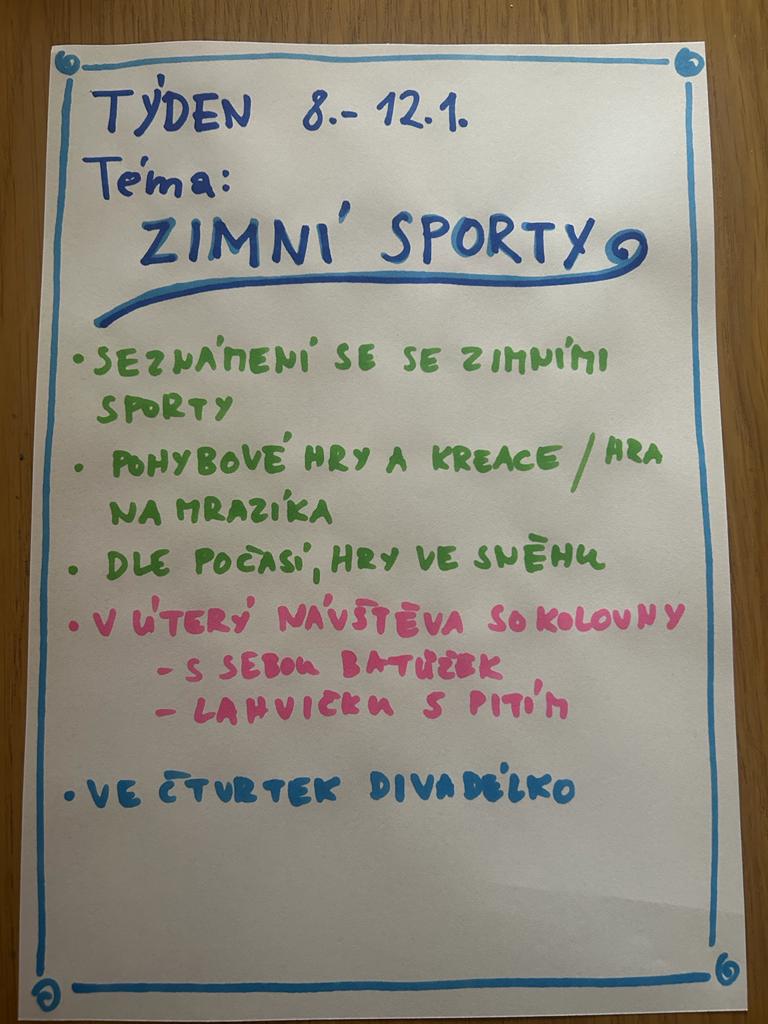 TÝDEN 8.-12.1.
Téma:
ZIMNÍ SPORTY
• SEZNÁMENÍ SE SE ZIMNÍMI
SPORTY
• POHYBOVÉ HRY A KREACE / HRA
NA MRAZÍKA
• DLE POČASÍ, HRY VE SNĚHU
• V ÚTERÝ NÁVŠTĚVA SOKOLOVNY
- S SEBOU BATŮŽEK
- LAHVIČKU S PITÍM
• VE ČTVRTEK DIVADÉLKO